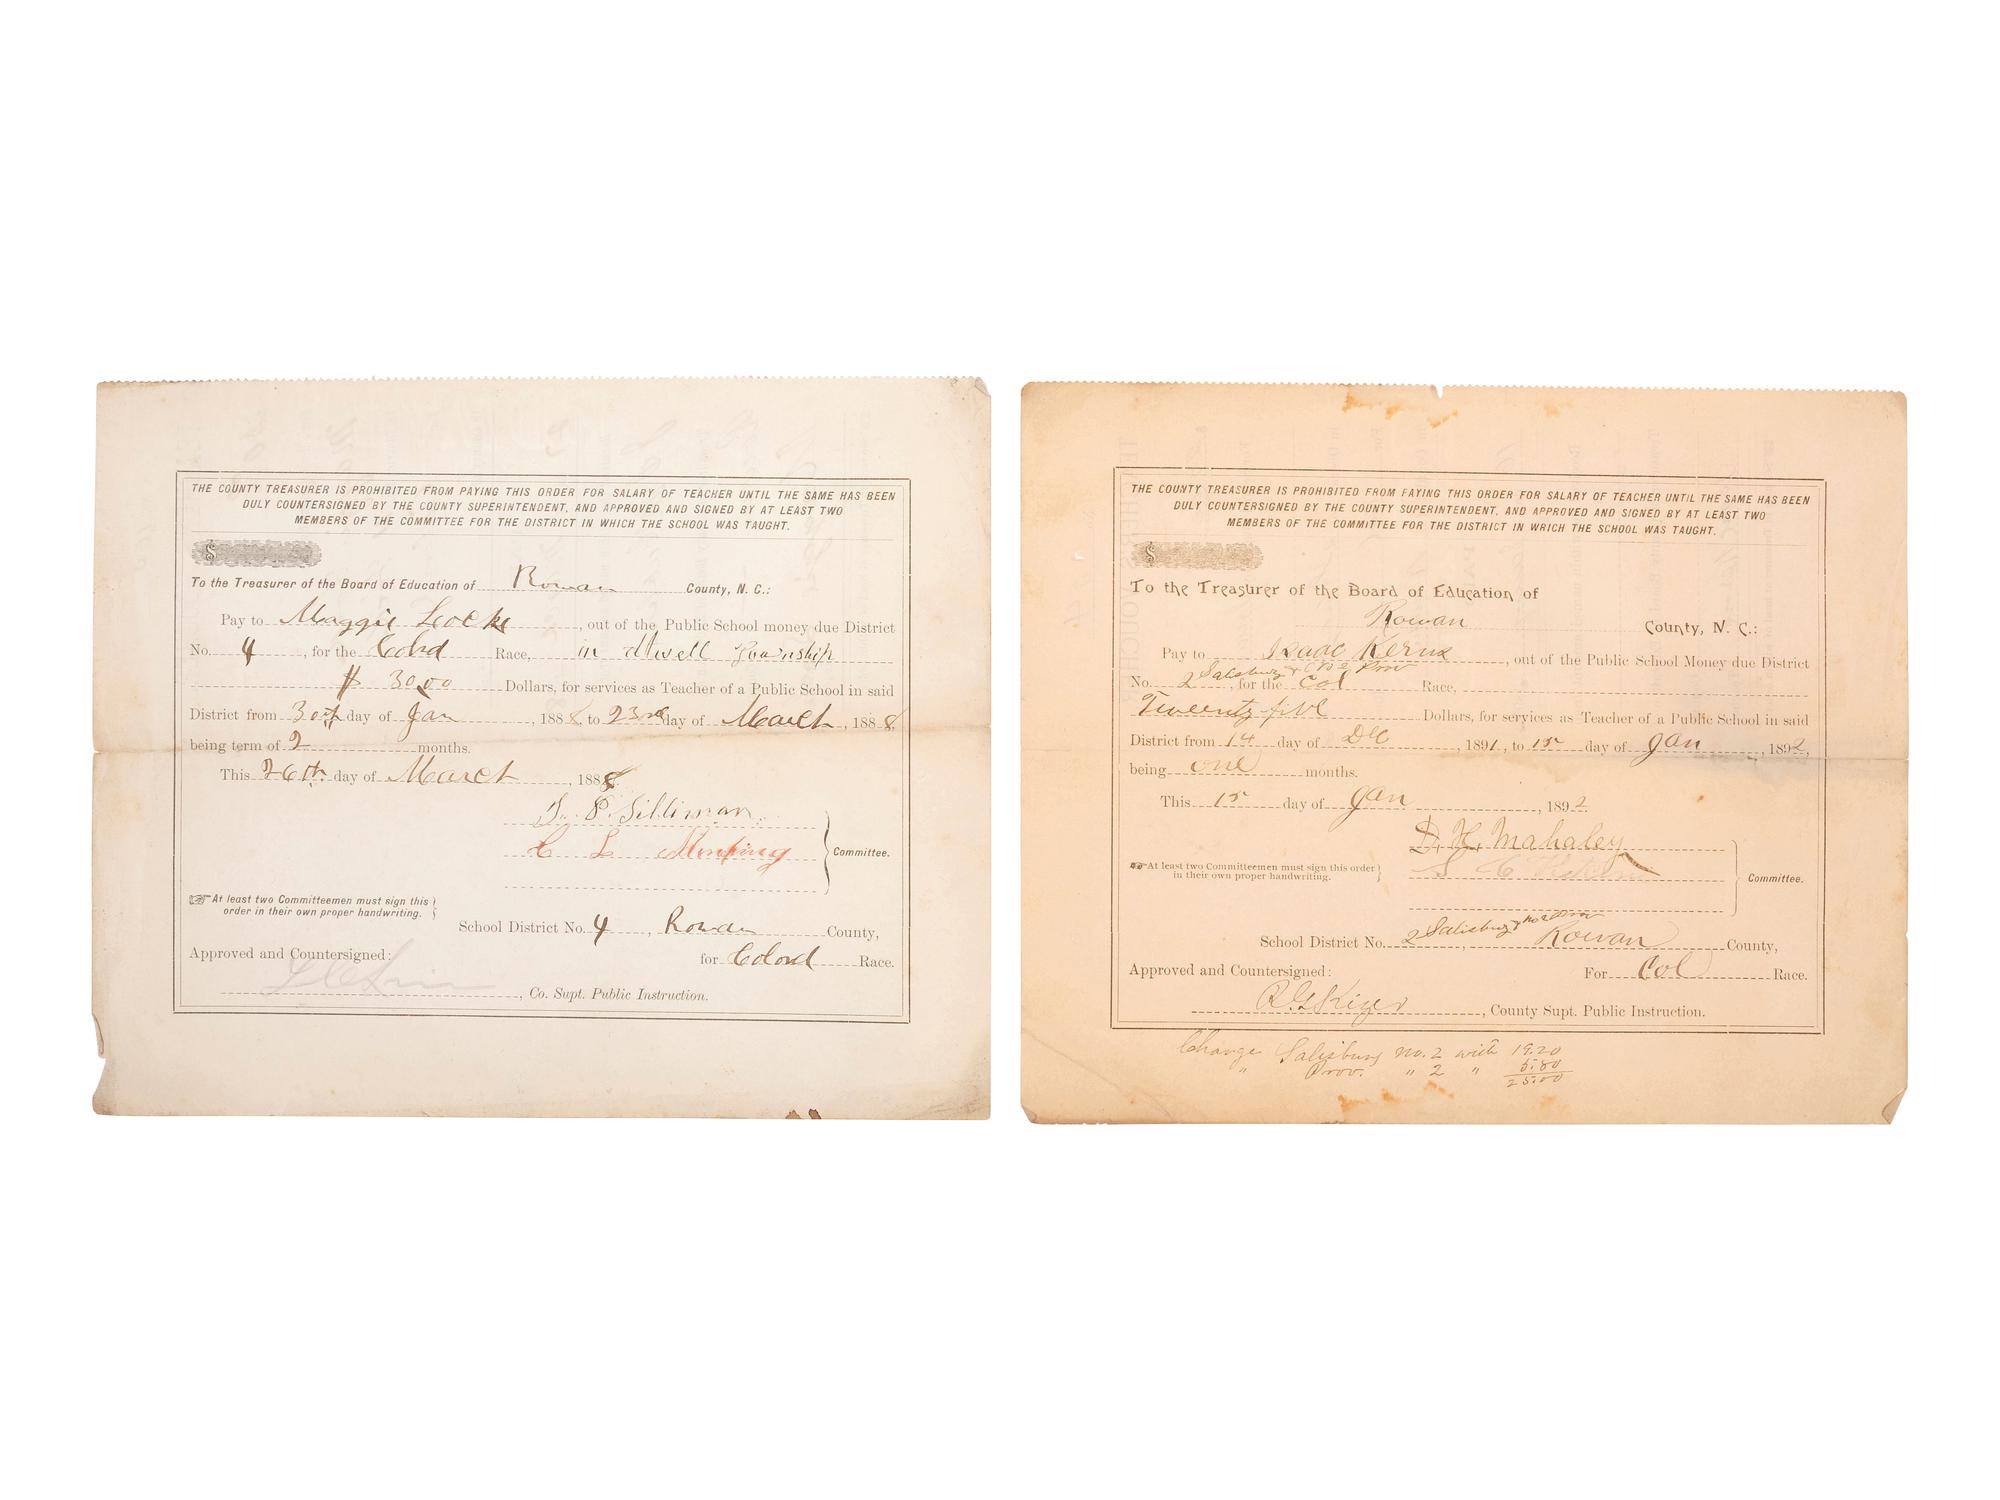 THE COUNTY TREASURER IS PROHIBITED FROM PAYING THIS ORDER FOR SALARY OF TEACHER UNTIL THE SAME HAS BEEN
DULY COUNTERSIGNED BY THE COUNTY SUPERINTENDENT, AND APPROVED AND SIGNED BY AT LEAST TWO
MEMBERS OF THE COMMITTEE FOR THE DISTRICT IN WHICH THE SCHOOL WAS TAUGHT.
$
To the Treasurer of the Board of Education of Rowan County, N. C.:
Pay to Maggie Locke, out of the Public School money due District
No. 4, for the Cold Race, in Atwell Township
$ 30.00 Dollars, for services as Teacher of a Public School in said
District from 30th day of Jan, 1888, to 23rd day of March, 1888,
being term of 2 months.
This 26th day of March, 1888
Silliman
C L
Committee.
☞ At least two Committeemen must sign this
order in their own proper handwriting.
School District No. 4, Rowan County,
Approved and Countersigned:
for Colord Race.
, Co. Supt. Public Instruction.
THE COUNTY TREASURER IS PROHIBITED FROM FAYING THIS ORDER FOR SALARY OF TEACHER UNTIL THE SAME HAS BEEN
DULY COUNTERSIGNED BY THE COUNTY SUPERINTENDENT, AND APPROVED AND SIGNED BY AT LEAST TWO
MEMBERS OF THE COMMITTEE FOR THE DISTRICT IN WRICH THE SCHOOL WAS TAUGHT.
$
To the Treasurer of the Board of Education of
Rowan County, N. C.:
Pay to Isaac Kerns, out of the Public School Money due District
Salisbury + Prov
No. 2, for the Col Race,
Tweenty five Dollars, for services as Teacher of a Public School in said
District from 14 day of Dec, 1891, to 15 day of Jan, 1892,
being one months.
This 15 day of Jan, 1892
D. H. Mahaley
☞ At least two Committeemen must sign this order
in their own proper handwriting.
Committee.
School District No. 2 Salisbury + no 2 Prov, Rowan County,
Approved and Countersigned:
For Col Race.
R. G. Kizer, County Supt. Public Instruction.
Change Salisbury No. 2 with 19.20
" Prov. " 2 " 5.80
25.00